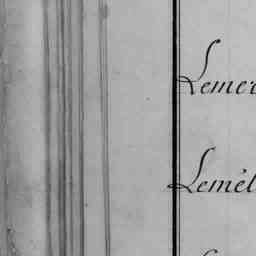 Lemer
Lemêl